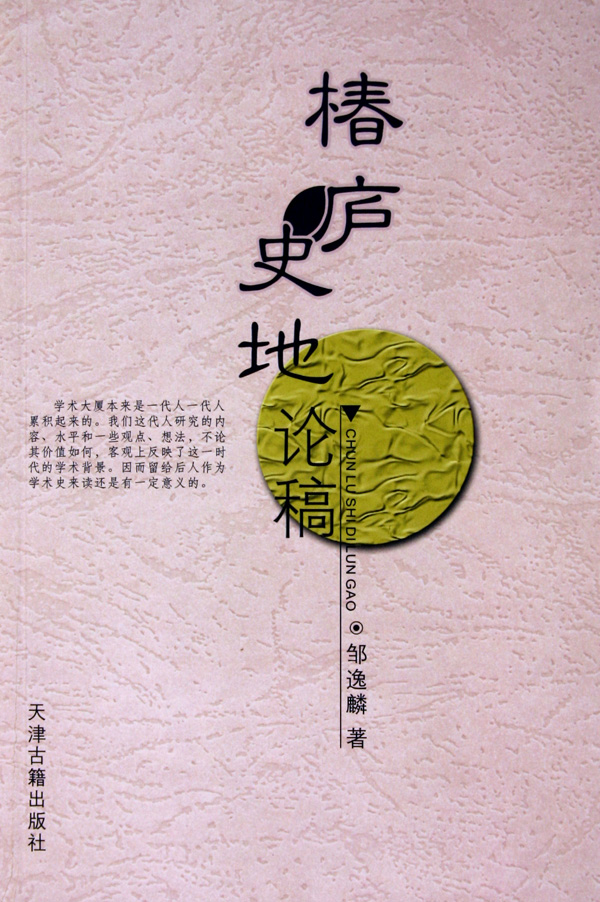 椿庐史地论稿
CHUN LU SHI DI LUN GAO
学术大厦本来是一代人一代人
累积起来的。我们这代人研究的内
容、水平和一些观点、想法，不论
其价值如何，客观上反映了这一时
代的学术背景。因而留给后人作为
学术史来读还是有一定意义的。
邹逸麟 著
天津古籍出版社